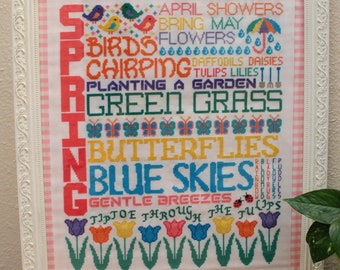 SPRING
APRIL SHOWERS
BRING MAY
FLOWERS
BIRDS
CHIRPING
DAFFODILS DAISIES
TULIPS LILIES
PLANTING A GARDEN
GREEN GRASS
BUTTERFLIES
BLUE SKIES
GENTLE BREEZES
TIPTOE THROUGH THE TULIPS